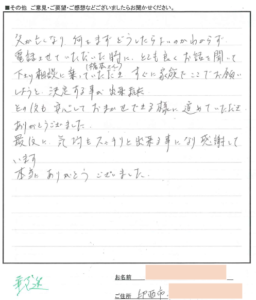 ■その他 ご意見・ご要望・ご感想などございましたらお聞かせください。
父が亡くなり何をまずどうしたらよいのかわからず
電話させていただいた時に、とても良くお話を聞いて
下さり相談に乗っていただき すぐに家族でここでお願い
しようと 決定する事が出来ました
その後も 安心しておまかせできる様に進めていただき
ありがとうございました。
最後に 気持もスッキリと出来る事になり感謝して
います
本当に ありがとう ございました。
お名前
ご住所 印西市
郵送